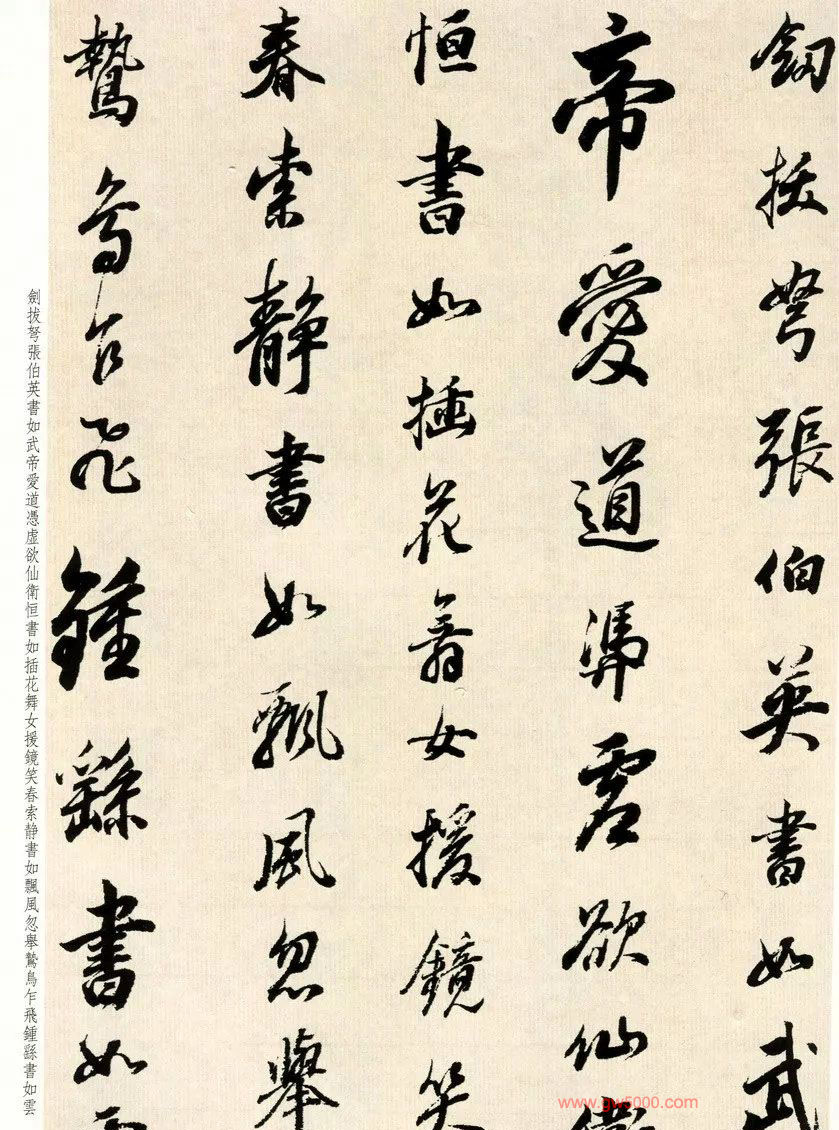 劍拔弩張伯英書如武
帝愛道憑虛欲仙衛
恒書如插花舞女援鏡笑
春索靜書如飄風忽舉
鷙鳥乍飛鍾繇書如雲
劍拔弩張伯英書如武帝愛道憑虛欲仙衛恒書如插花舞女援鏡笑春索靜書如飄風忽舉鷙鳥乍飛鍾繇書如雲
www.gw5000.com